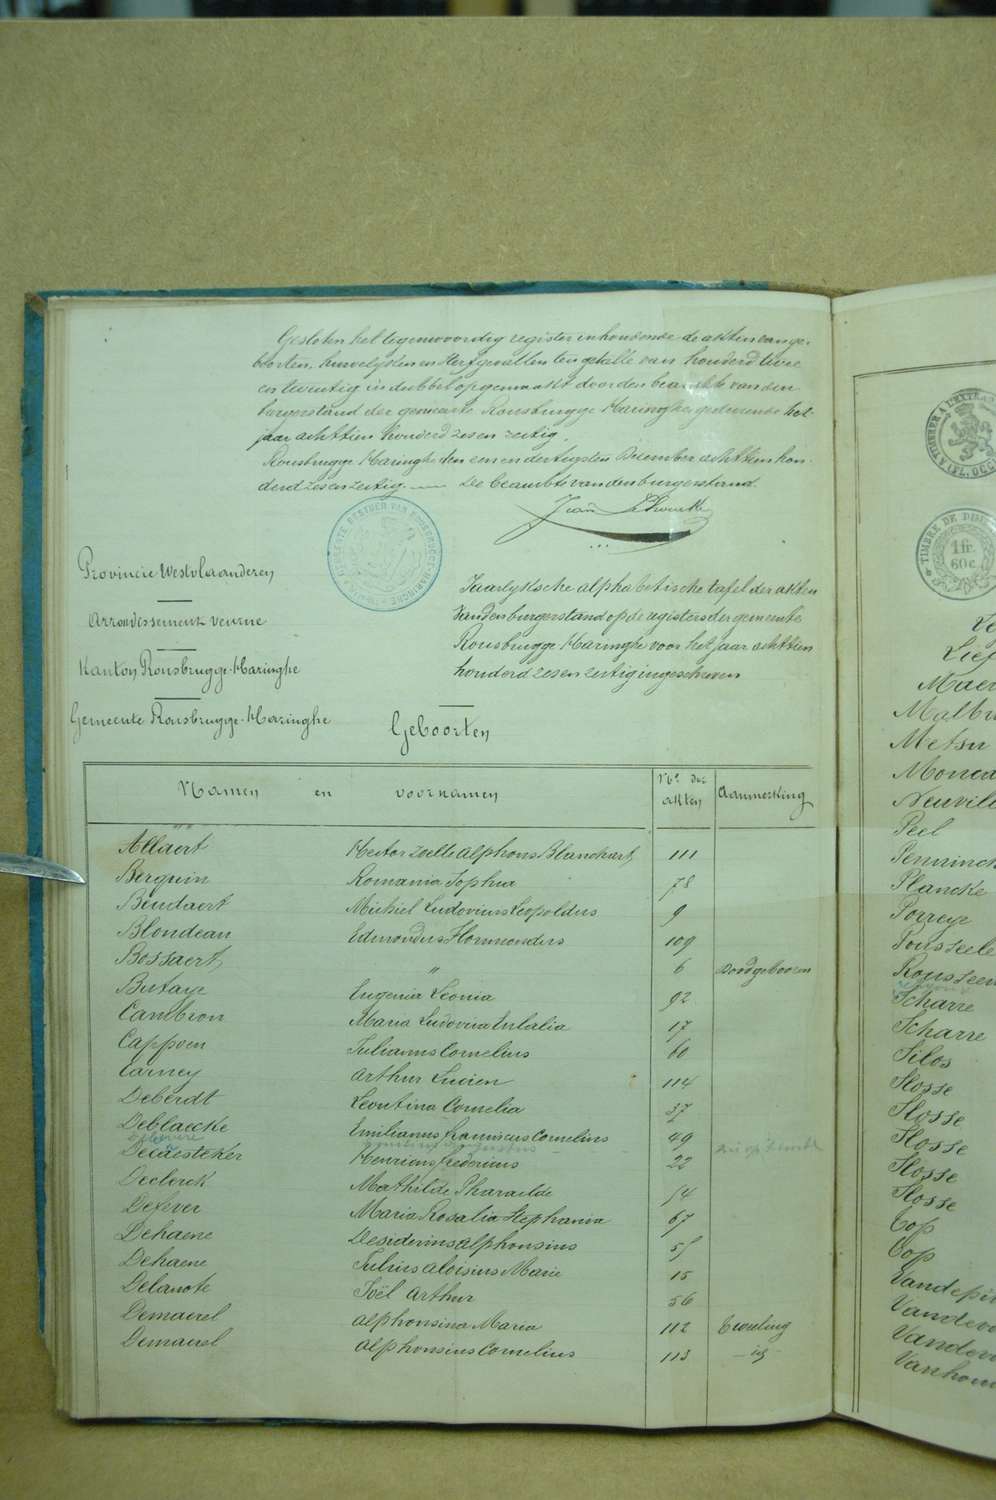 Gesloten het tegenwoordig register inhoudende de akten van ge-
boorten, huwelijken en sterfgevallen ten getalle van honderd twee
en twintig in dubbel opgemaakt door den beambte van den
burgerstand der gemeente Rousbrugge-Haringhe gedurende het
jaar achttien honderd zes en zestig.
Rousbrugge-Haringhe den een en dertigsten December achttien hon-
derd zes en zestig. De beambte van den burgerstand.
Provincie Westvlaanderen
Arrondissement veurne
Kanton Rousbrugge-Haringhe
Gemeente Rousbrugge-Haringhe
Jaarlyksche alphabetische tafel der akten
van den burgerstand op de registers der gemeente
Rousbrugge Haringhe voor het jaar achttien
honderd zes en zestig ingeschreven
Geboorten
Namen en voornamen No der akten Aanmerking
Allaert Hector Zoëlle Alphons Blanckaert 111
Berquin Romania Sophia 78
Beudaert Michiel Ludovicus Leopoldus 9
Blondeau Edmondus Florimondus 109
Bossaert " 6 Doodgebooren
Butaye Eugenia Leonia 92
Cambron Maria Ludovica Eulalia 17
Cappoen Julianus Cornelius 60
Carrey Arthur Lucien 114
Deberdt Leontina Cornelia 37
Deblaecke Emilianus Franciscus Cornelius 49
Decaesteker Henricus Fredericus 22
Declerck Mathilde Pharaïlde 54
Defever Maria Rosalia Stephania 67
Dehaene Desiderius Alphonsius 51
Dehaene Julius Aloïsius Marie 15
Delanote Joël Arthur 56
Demaerel Alphonsina Maria 112 tweeling
Demaerel Alphonsius Cornelius 113 — id
TIMBRE DE DIM
1 fr.
60 c.
Lief
Maer
Malbr
Metsu
Monca
Neuvill
Peel
Penninck
Plancke
Porreye
Pousseele
Rousseeu
Scharre
Scharre
Silos
Slosse
Slosse
Slosse
Slosse
Slosse
Top
Top
Vandepit
Vandev
Vandev
Vanhou